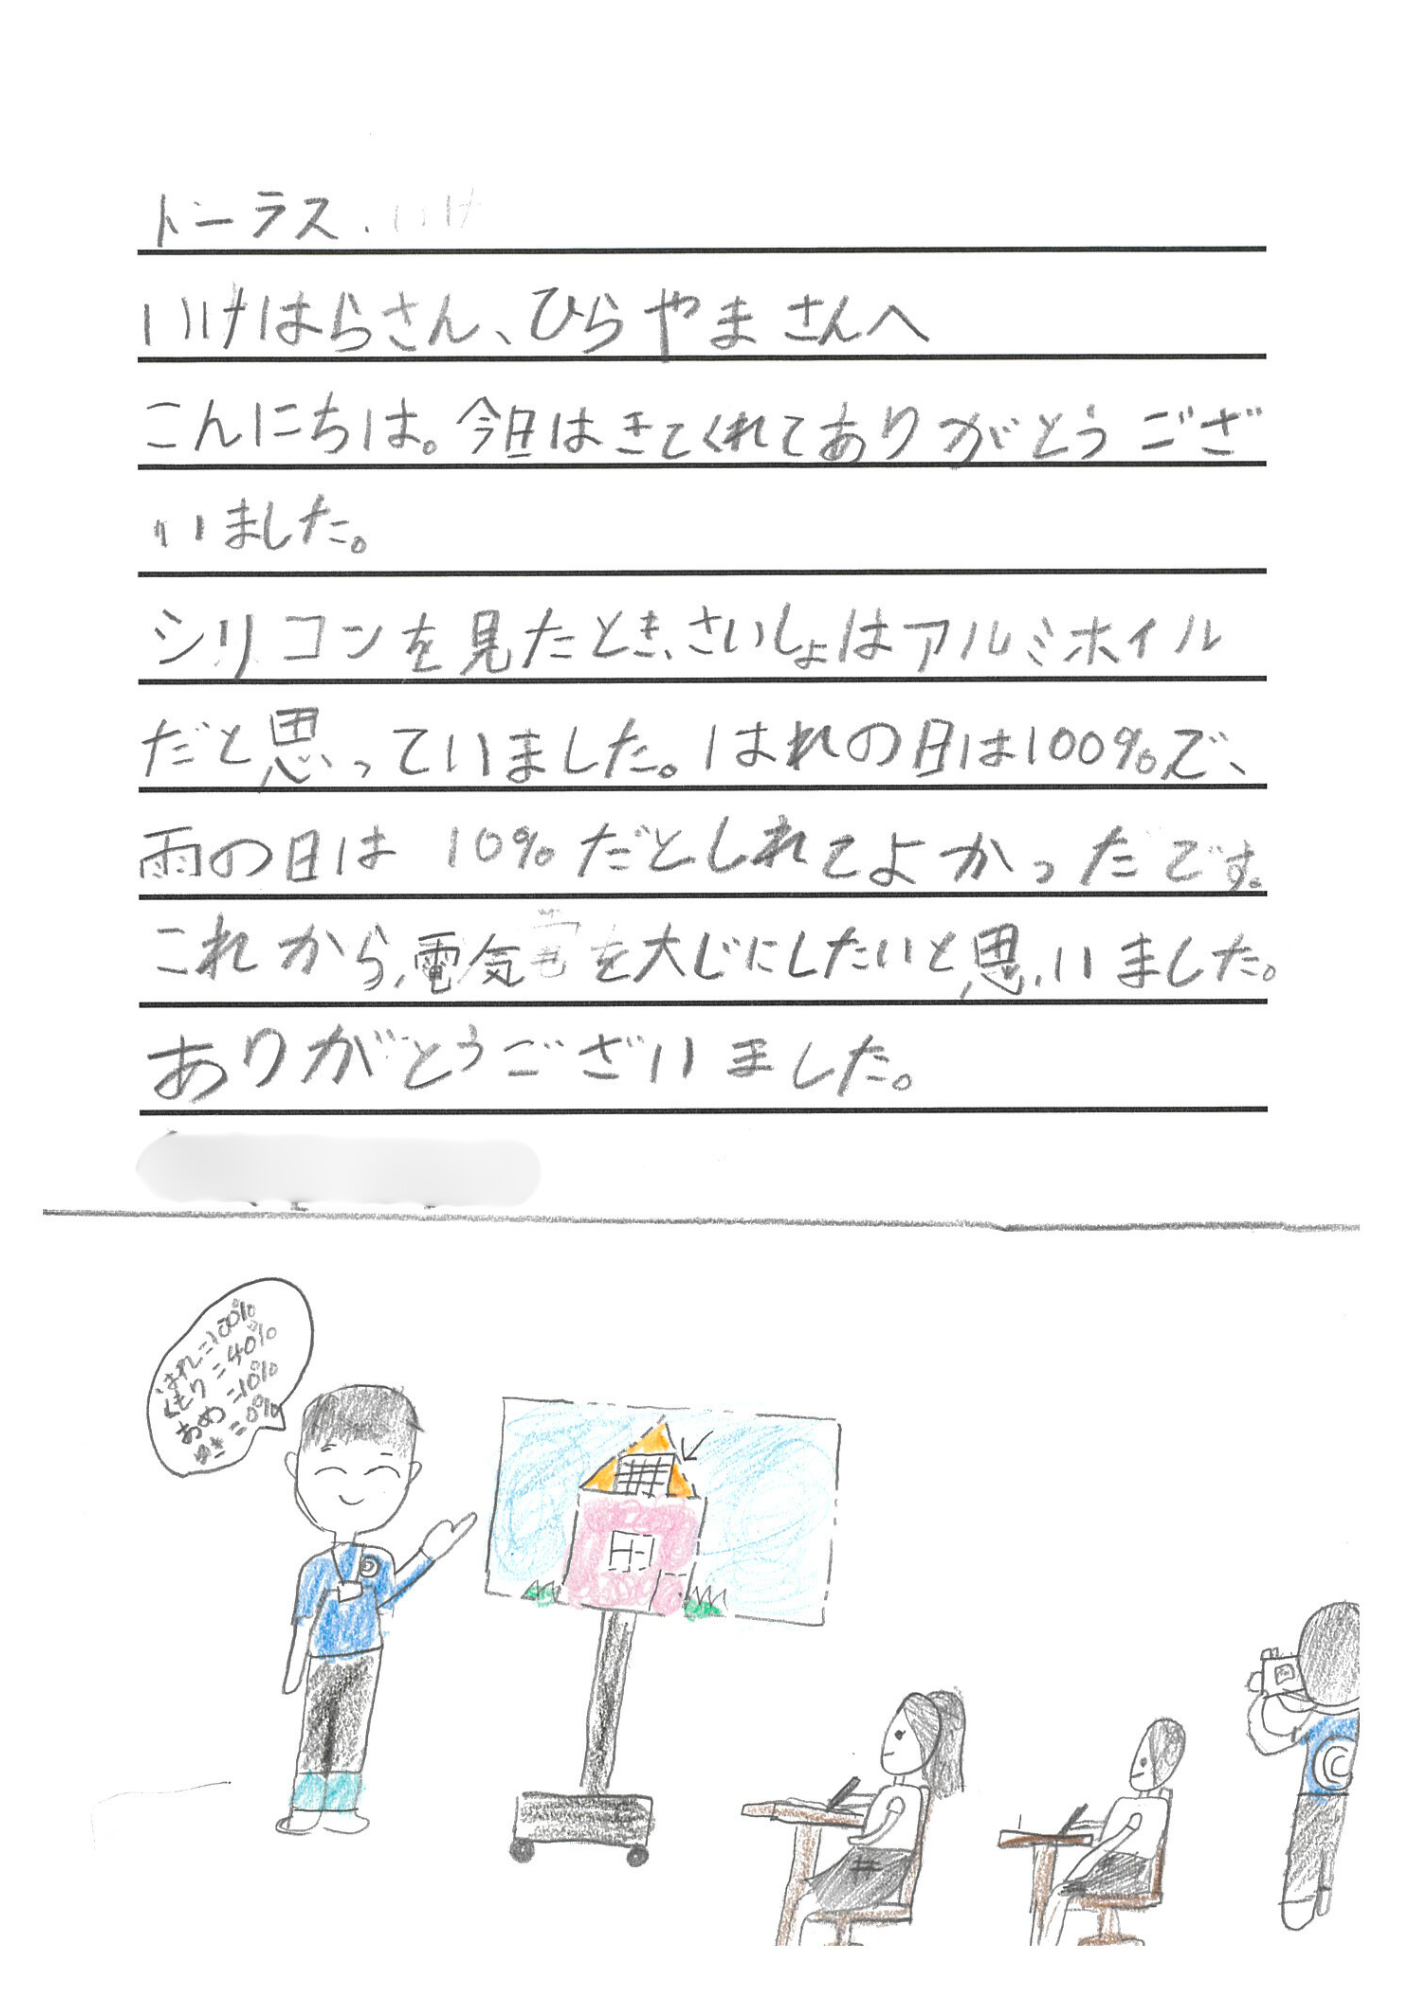 トーラス、
いけはらさん、ひらやまさんへ
こんにちは。今日はきてくれてありがとうござ
いました。
シリコンを見たとき、さいしょはアルミホイル
だと思っていました。はれの日は100%で、
雨の日は 10%だとしれてよかったです。
これから、電気を大じにしたいと思いました。
ありがとうございました。
はれ=100%
くもり=40%
あめ=10%
ゆき=0%